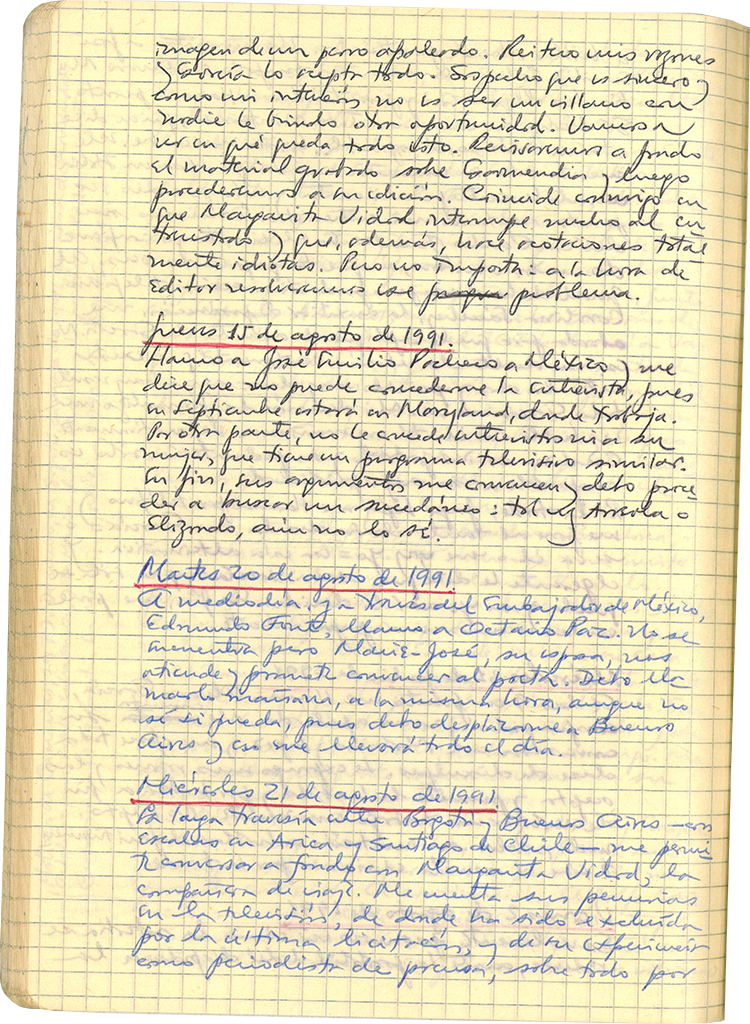 imagen de un perro apaleado. Reitero mis razones
y García lo acepta todo. Sospecho que es sincero y
como mi intención no es ser un villano con
nadie le brindo otra oportunidad. Vamos a
ver en qué queda todo esto. Revisaremos a fondo
el material grabado sobre Garmendia y luego
procederemos a su edición. Coincide conmigo en
que Margarita Vidal interrumpe mucho al en
trevistado y que, además, hace acotaciones total
mente idiotas. Pero no importa: a la hora de
editar resolveremos ese problema.
Jueves 15 de agosto de 1991.
Llamo a José Emilio Pacheco a México y me
dice que no puede concederme la entrevista, pues
en Septiembre estará en Maryland, donde trabaja.
Por otra parte, no le concede entrevistas ni a su
mujer, que tiene un programa televisivo similar.
En fin, sus argumentos me convencen y debo proce-
der a buscar un sucedáneo: tal vez Arreola o
Elizondo, aún no lo sé.
Martes 20 de agosto de 1991.
A mediodía, y a través del Embajador de México,
Edmundo Font, llamo a Octavio Paz. No se
encuentra pero Marie-José, su esposa, nos
atiende y promete convencer al poeta. Debo lla
marlo mañana, a la misma hora, aunque no
sé si pueda, pues debo desplazarme a Buenos
Aires y eso me llevará todo el día.
Miércoles 21 de agosto de 1991.
La larga travesía entre Bogotá y Buenos Aires —con
escalas en Arica y Santiago de Chile— me permi-
te conversar a fondo con Margarita Vidal, la
compañera de viaje. Me cuenta sus penurias
en la televisión, de donde ha sido excluida
por la última licitación, y de su experiencia
como periodista de prensa, sobre todo por